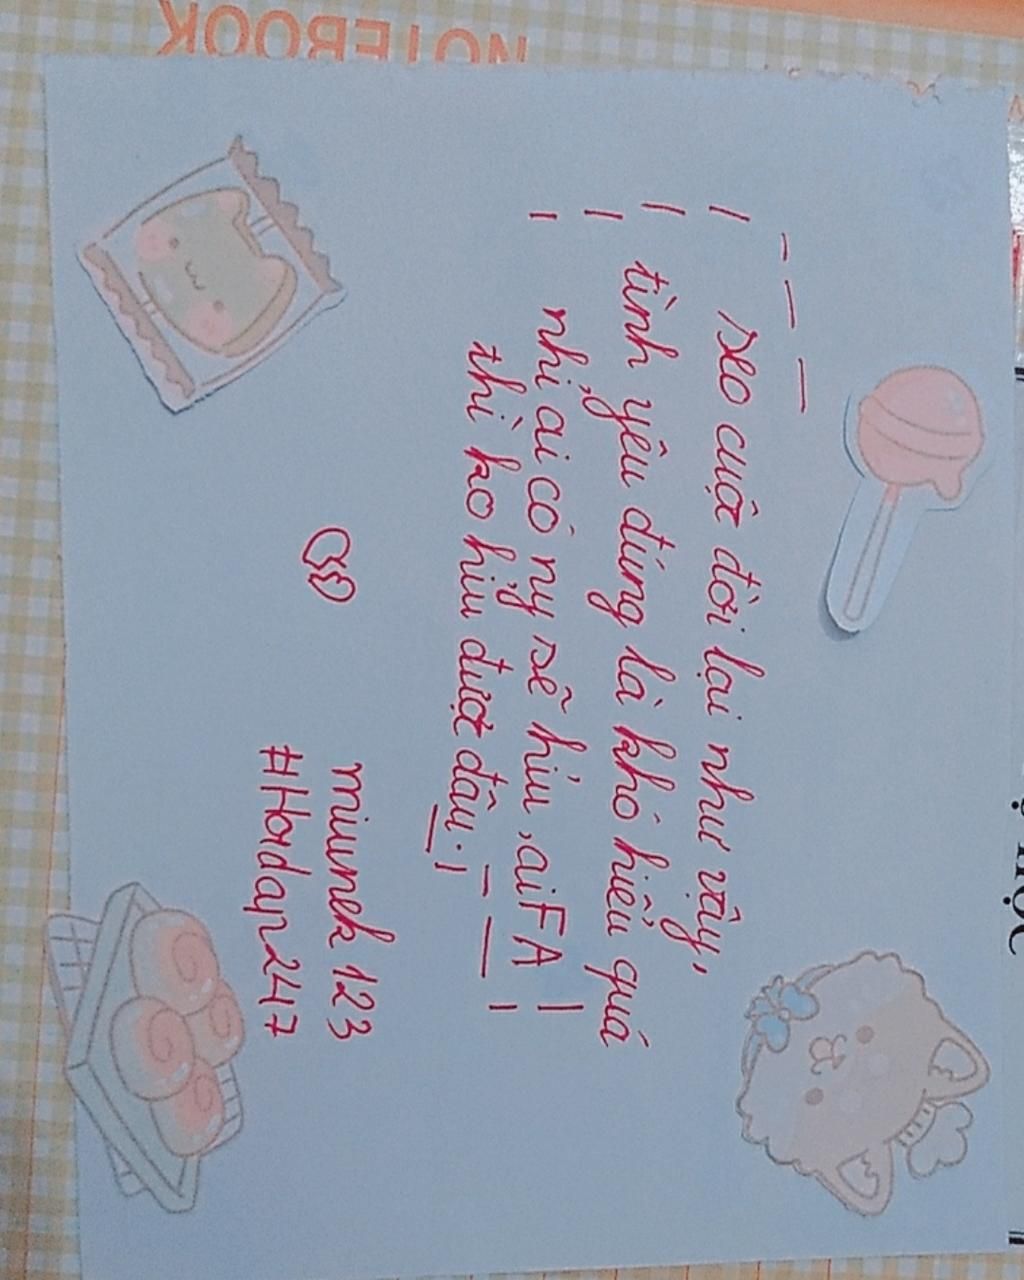 NOTEBOOK
seo cuộc đời lại như vậy,
tình yêu đúng là khó hiểu quá
nhỉ, ai có ny sẽ hỉu, ai FA
thì ko hỉu được đâu.
miunek 123
#Hoidap247
HỌC